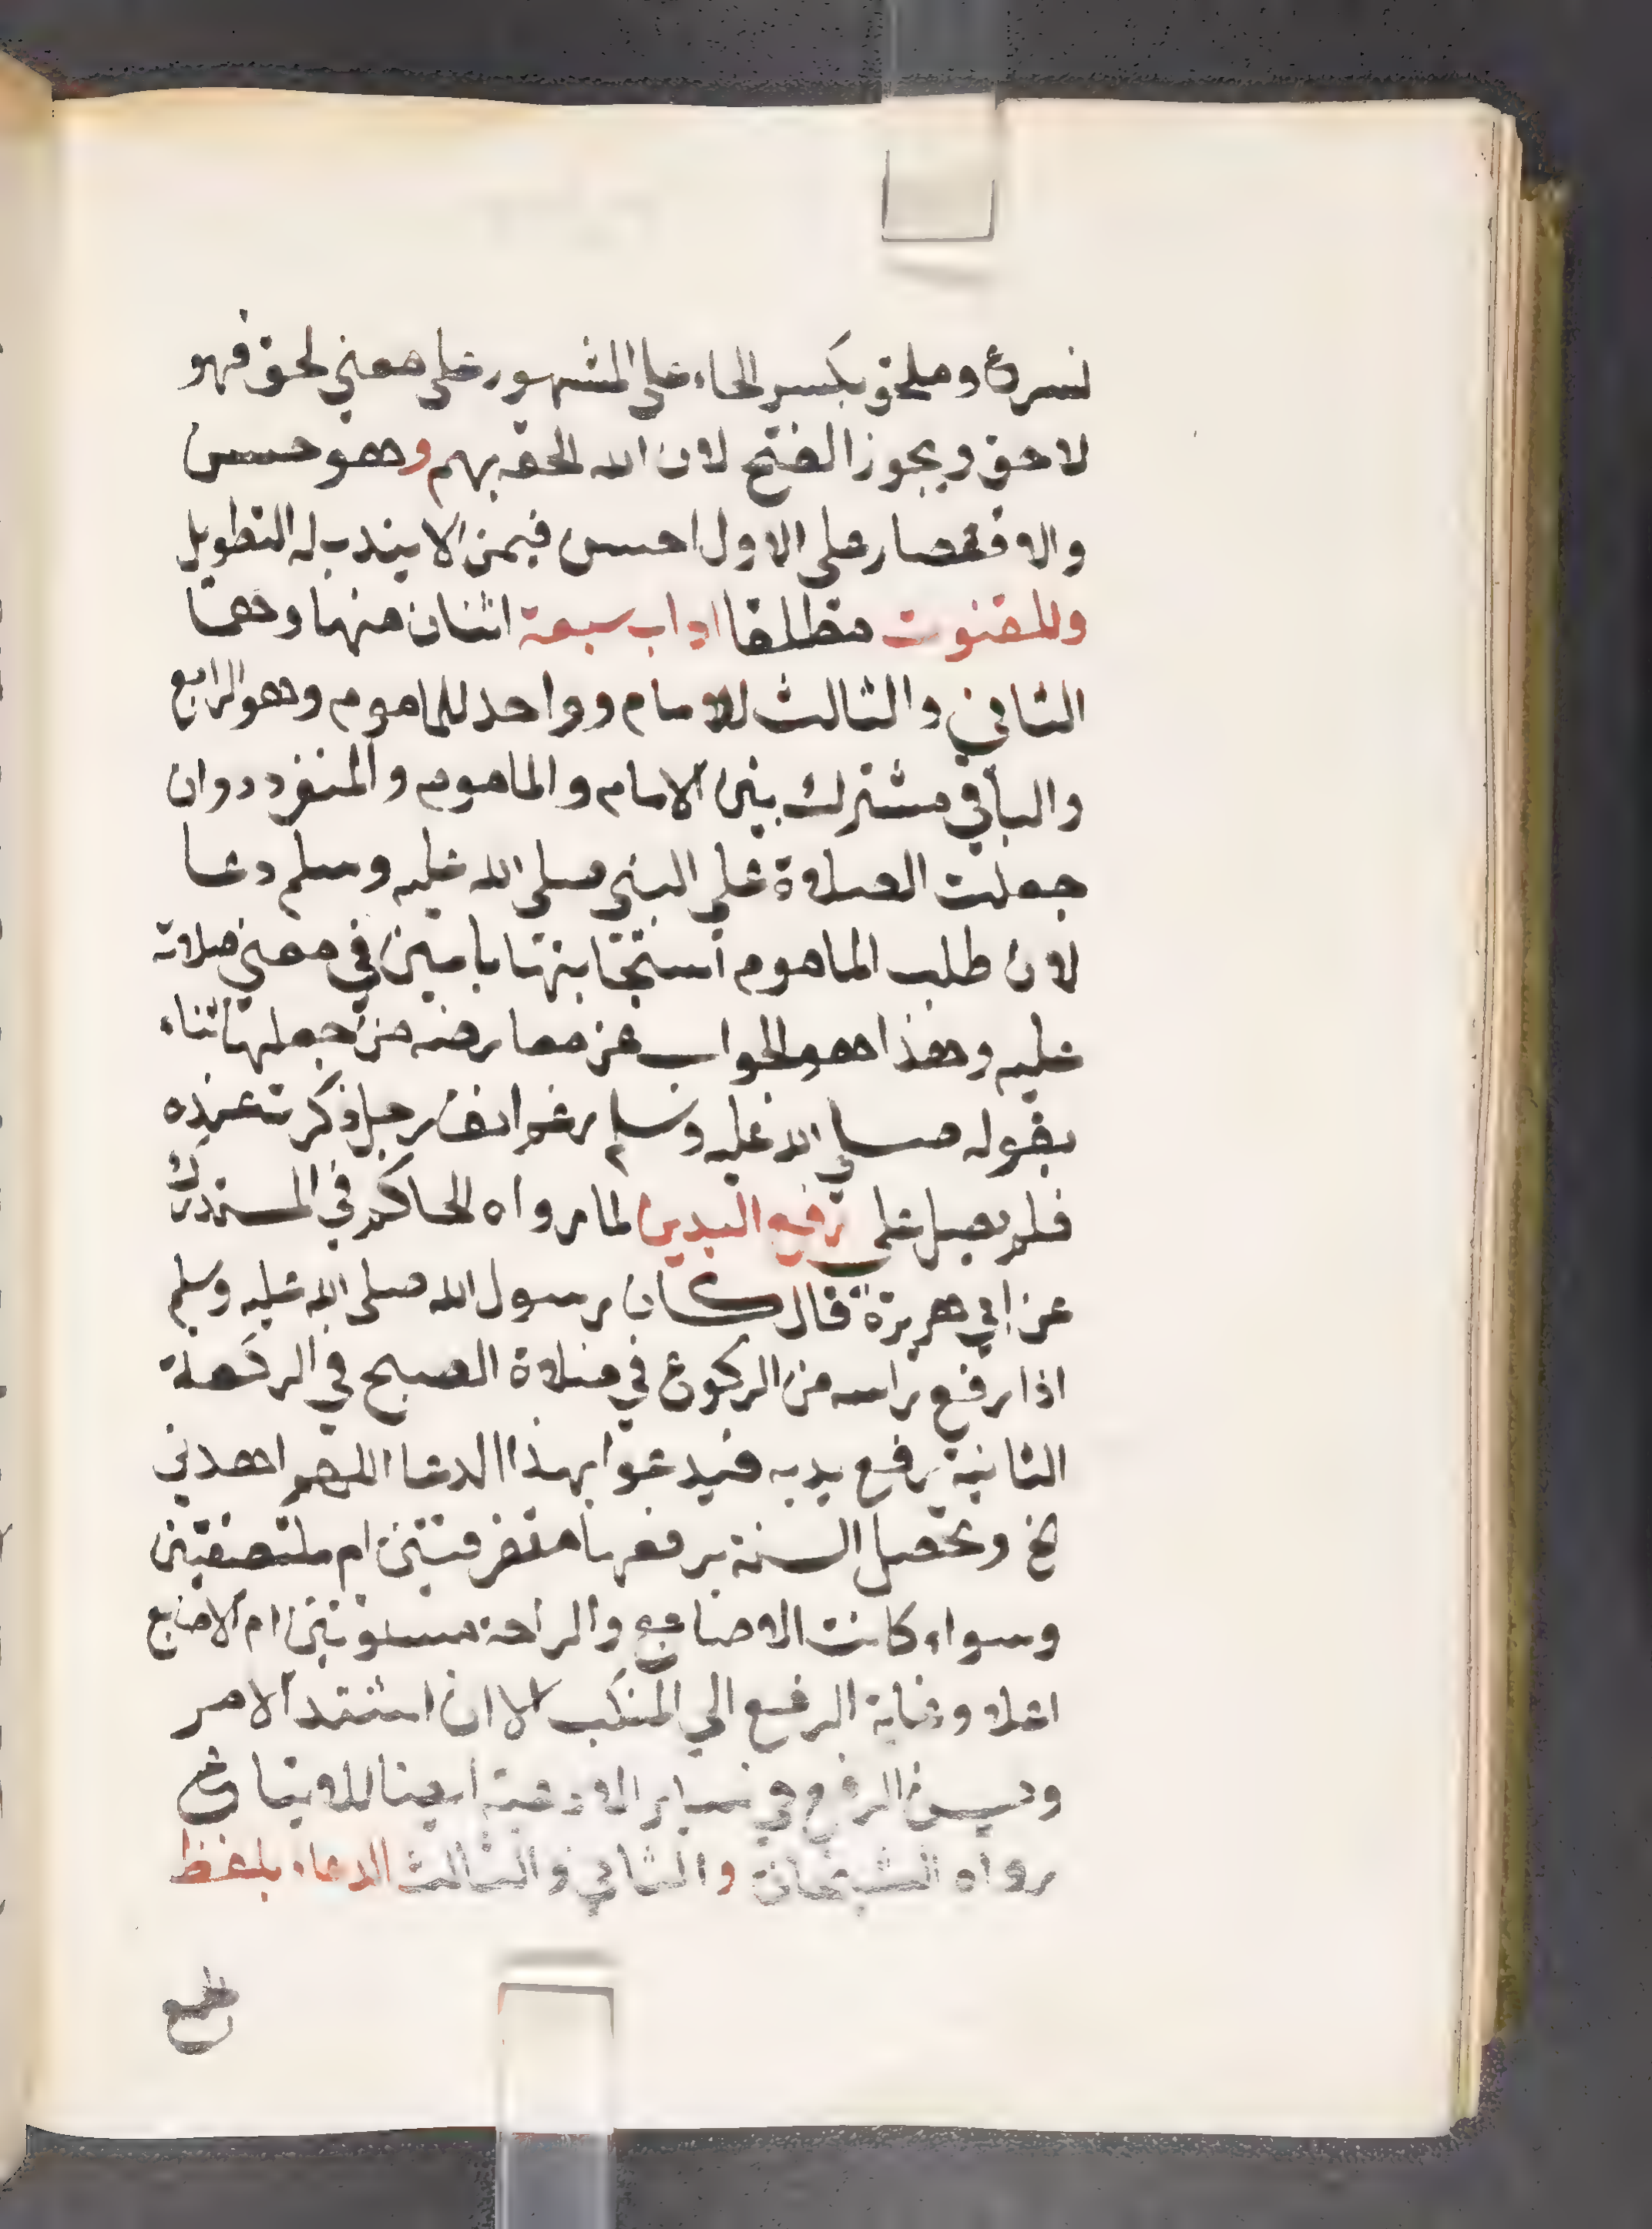 نسرع وملحق بكسر الحاء على المشهور على معني لحق فهو
لاحق ويجوز الفتح لان الله الحقه بهم وهو حسن
والاقتصار على الاول احسن فيمن لا يندب له التطويل
وللقنوت مطلقا اداب سبعة اثنان منها وهما
الثاني والثالث للامام وواحد للماموم وهو الرابع
والباقي مشترك بين الامام والماموم والمنفرد وان
جعلت الصلاة علي النبي صلي الله عليه وسلم دعا
لان طلب الماموم استجابتها بامين في معني صلاته
عليه وهذا هو الجواب عن معارضه من جعلها ثناء
بقوله صلي الله عليه وسلم رغم انف رجل ذكرت عنده
فلم يصل علي رفع اليدين لما رواه الحاكم في المستدرك
عن ابي هريرة قال كان رسول الله صلى الله عليه وسلم
اذا رفع راسه من الركوع في صلاة الصبح في الركعة
الثانية رفع يديه فيدعوا بهذا الدعا اللهم اهدني
الخ وتحصل السنة برفعها متفرقتين ام ملتصقتين
وسواء كانت الاصابع والراحة مستويتين ام الاصابع
اعلا وغاية الرفع الي المنكب الا ان اشتد الامر
ويسن الرفع في ساير الادعية ايضا للاتباع
رواه الشيخان والثاني والثالث الدعاء بلفظ